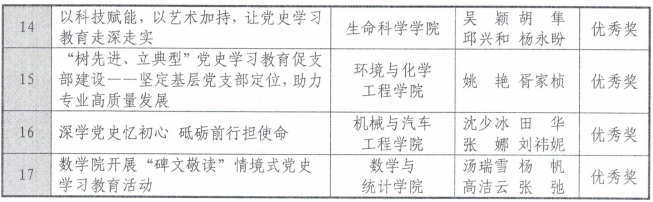 14 以科技赋能，以艺术加持，让党史学习 生命科学学院 吴 颖 胡 隼 优秀奖
教育走深走实 邱兴和 杨永盼
15 “树先进、立典型”党史学习教育促支 环境与化学 姚 艳 胥家桢 优秀奖
部建设——坚定基层党支部定位，助力 工程学院
专业高质量发展
16 深学党史忆初心 砥砺前行担使命 机械与汽车 沈少冰 田 华 优秀奖
工程学院 张 娜 刘祎妮
17 数学院开展“碑文敬读”情境式党史 数学与 汤瑞雪 杨 帆 优秀奖
学习教育活动 统计学院 高洁云 张 弛